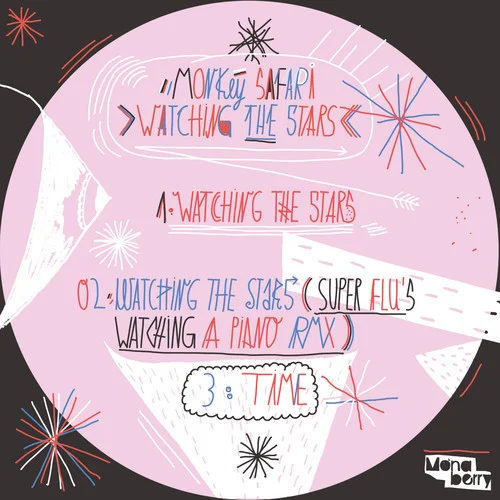 "MONKEY SAFARI
>WATCHING THE STARS<
1. WATCHING THE STARS
02. WATCHING THE STARS (SUPER FLU'S
WATCHING A PIANO RMX)
3: TIME
Mona
berry